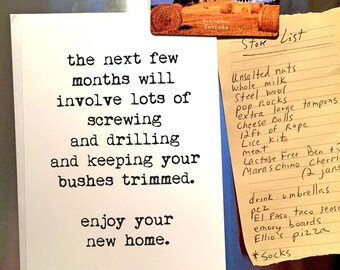 the next few
months will
involve lots of
screwing
and drilling
and keeping your
bushes trimmed.
enjoy your
new home.
Store List
Unsalted nuts
Whole milk
Steel wool
pop rocks
extra large tampons
Cheese Balls
12ft of Rope
Lice kit
meat
Lactose Free Ben +
Maraschino Cherri
(2 jars
drink umbrellas
pez
El Paso taco seaso
emory boards
Ellio's pizza
*Socks